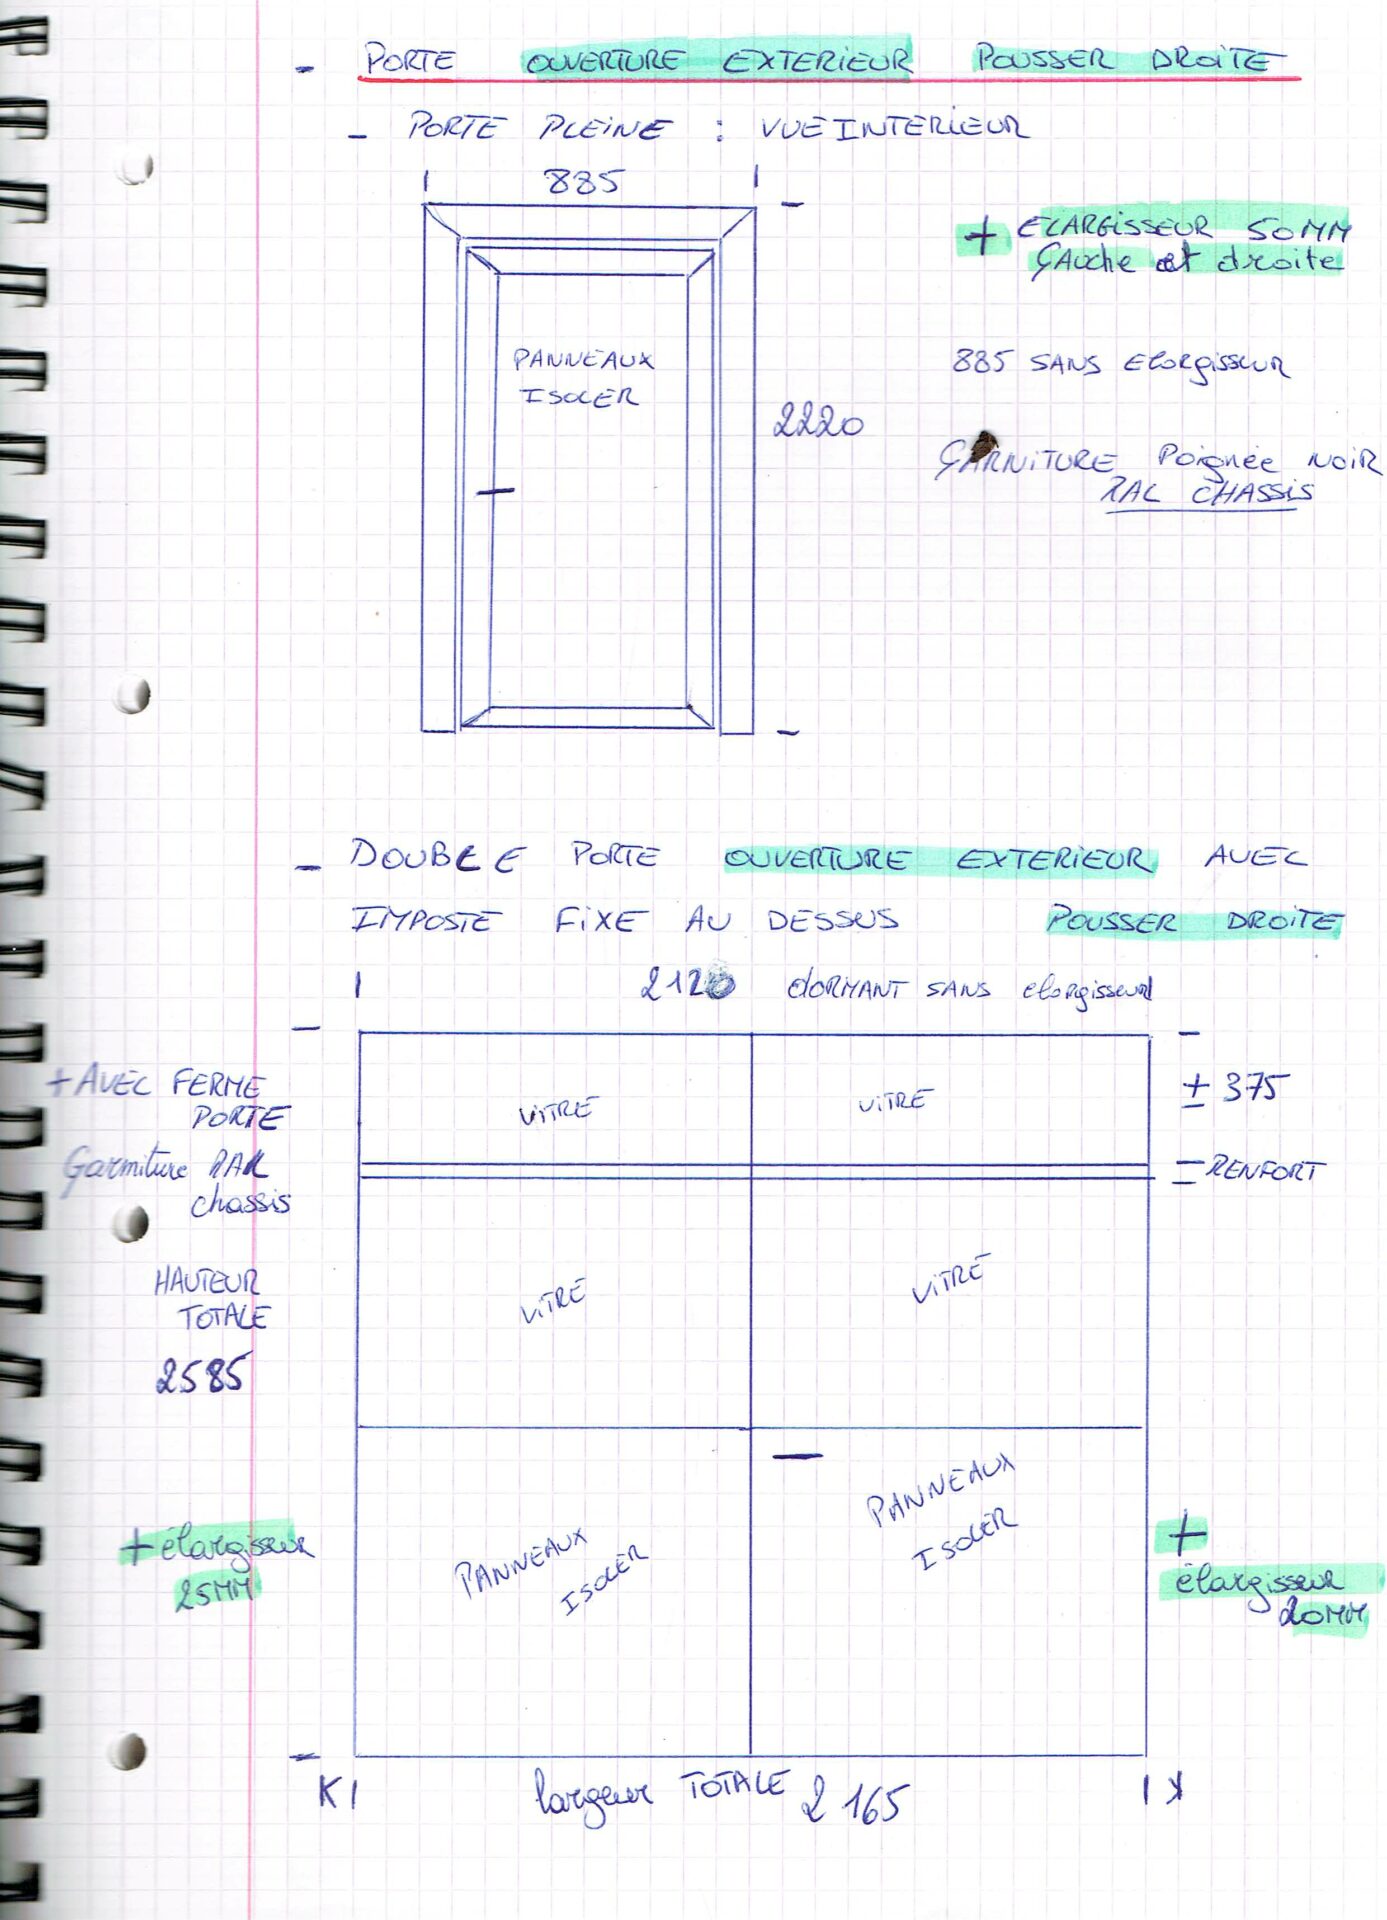 - PORTE OUVERTURE EXTERIEUR POUSSER DROITE
- PORTE PLEINE : VUE INTERIEUR
885
+ ELARGISSEUR 50MM
GAUche et droite
PANNEAUX
ISOLER
885 SANS ELARGISSEUR
2220
GARNITURE Poignée NOIR
RAL CHASSIS
- DOUBLE PORTE OUVERTURE EXTERIEUR AVEC
IMPOSTE FIXE AU DESSUS POUSSER DROITE
2120 dORMANT SANS elargisseur
+ AVEC FERME
PORTE
VITRE
VITRE
± 375
Garniture RAL
chassis
RENFORT
HAUTEUR
TOTALE
2585
VITRE
VITRE
PANNEAUX
ISOLER
PANNEAUX
ISOLER
+ élargisseur
25MM
+
élargisseur
20MM
largeur TOTALE 2165